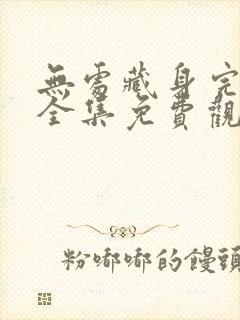 無處藏身完
全集免費觀
粉嘟嘟的饅頭